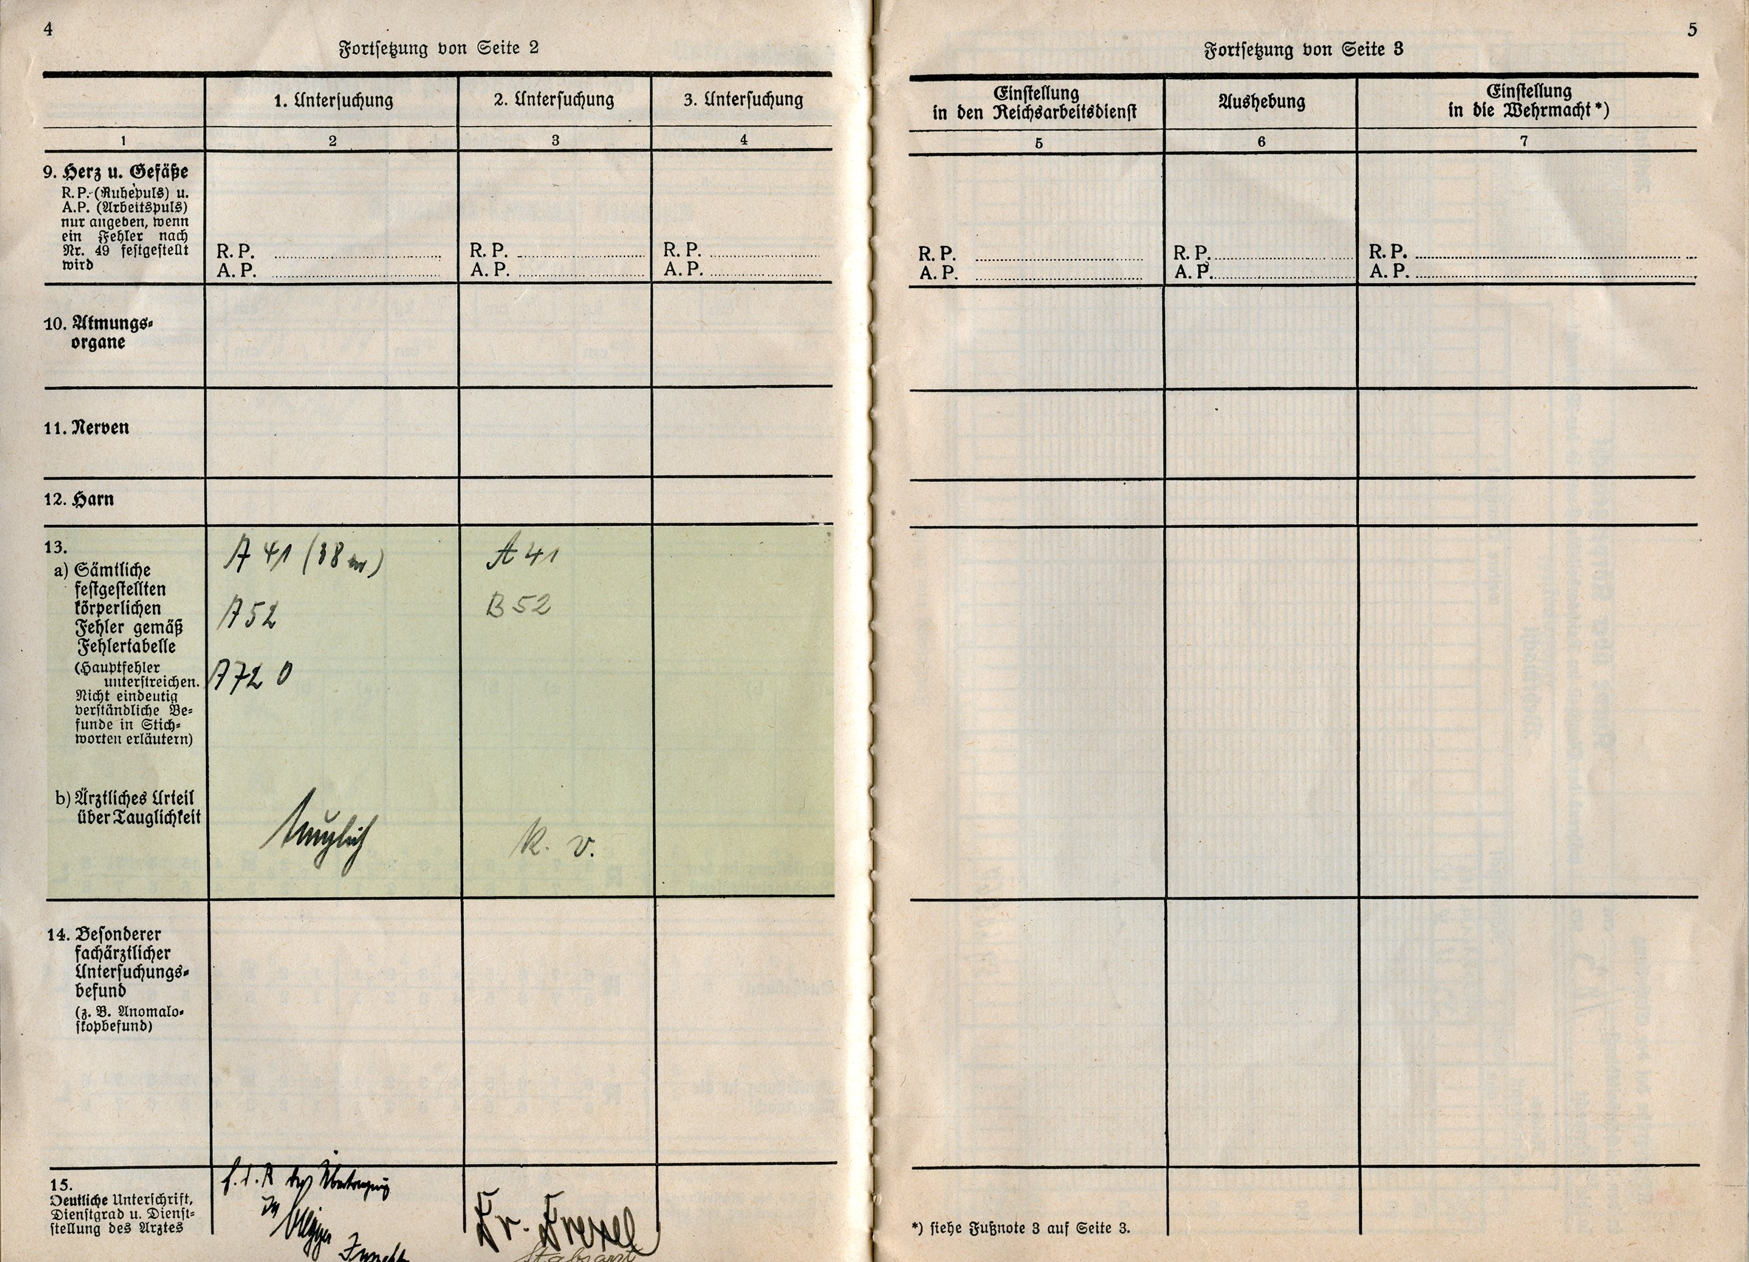 4
Fortsetzung von Seite 2
1. Untersuchung
2. Untersuchung
3. Untersuchung
1
2
3
4
9. Herz u. Gefäße
R. P. (Ruhepuls) u.
A.P. (Arbeitspuls)
nur angeben, wenn
ein Fehler nach
Nr. 49 festgestellt
wird
R. P.
A. P.
R. P.
A. P.
R. P.
A. P.
10. Atmungs-
organe
11. Nerven
12. Harn
13.
a) Sämtliche
festgestellten
körperlichen
Fehler gemäß
Fehlertabelle
(Hauptfehler
unterstreichen.
Nicht eindeutig
verständliche Be-
funde in Stich-
worten erläutern)
A 41 (38 m)
A 52
A 72 0
A 41
B 52
b) Ärztliches Urteil
über Tauglichkeit
tauglich
k. v.
14. Besonderer
fachärztlicher
Untersuchungs-
befund
(z. B. Anomalo-
skopbefund)
15.
Deutliche Unterschrift,
Dienstgrad u. Dienst-
stellung des Arztes
f. d. R. der Übertragung
Dr.
Dr. Drexel
Stabsarzt
5
Fortsetzung von Seite 3
Einstellung
in den Reichsarbeitsdienst
Aushebung
Einstellung
in die Wehrmacht *)
5
6
7
R. P.
A. P.
R. P.
A. P.
R. P.
A. P.
*) siehe Fußnote 3 auf Seite 3.